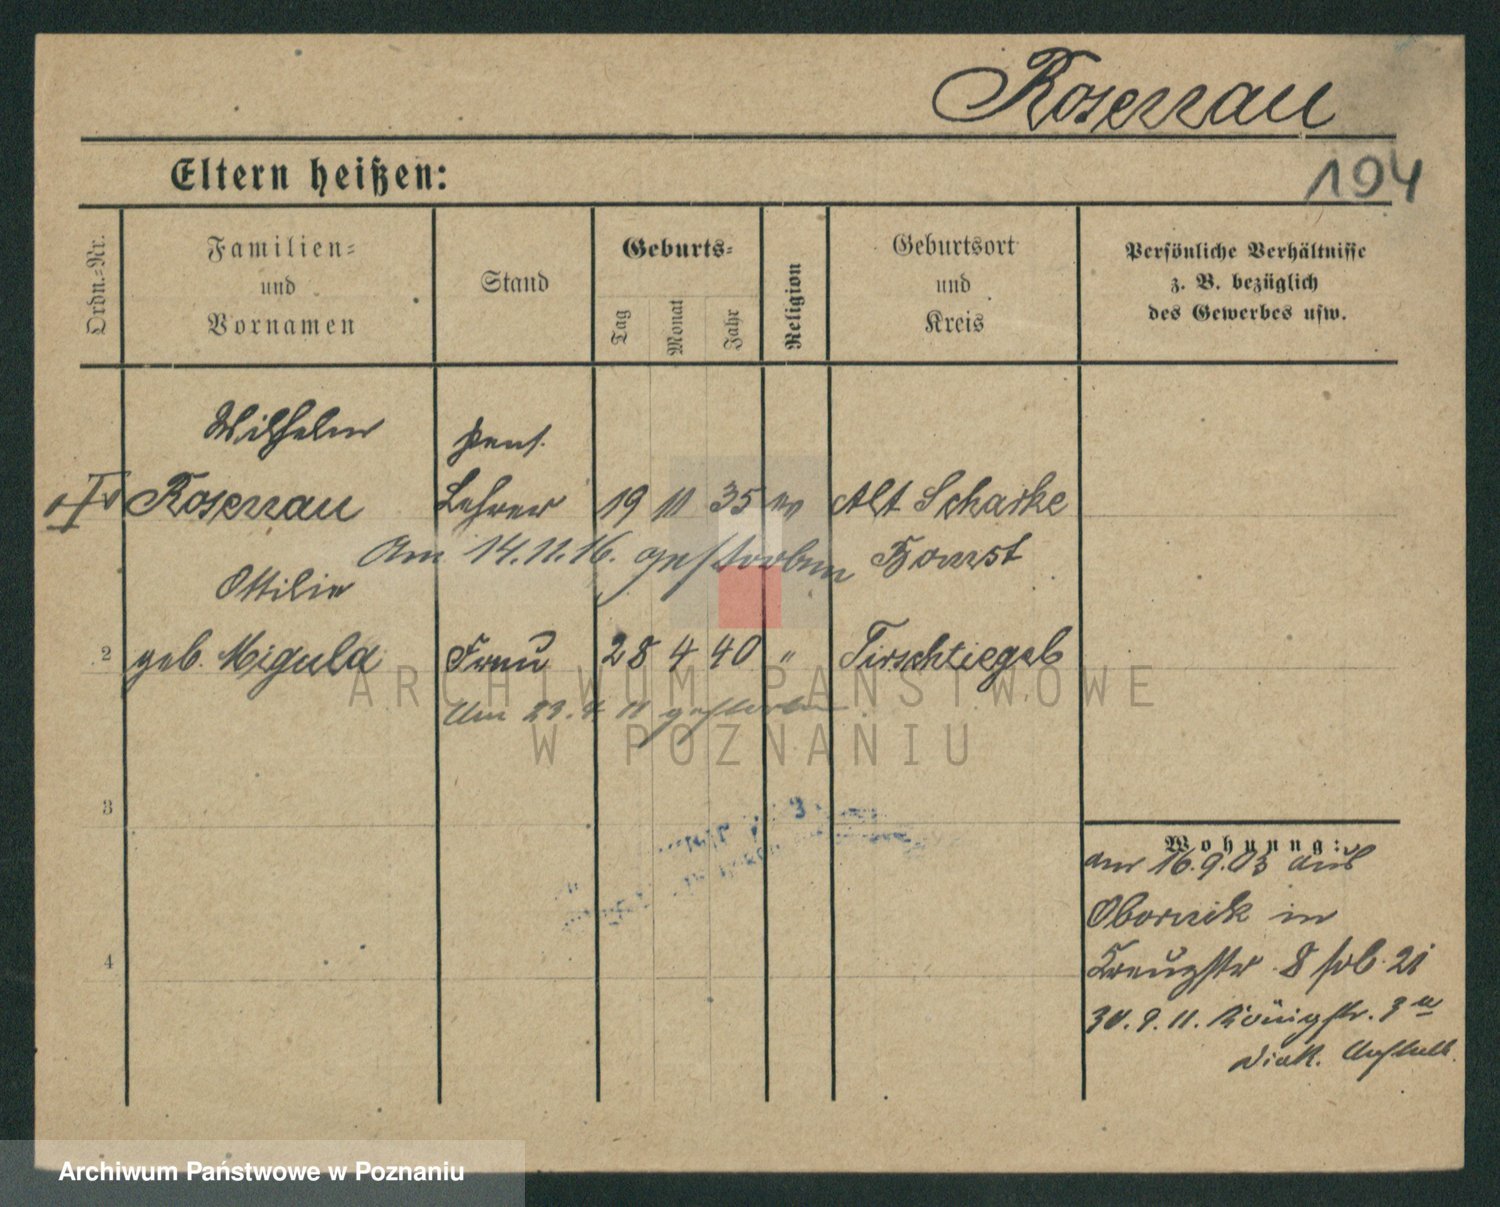 Rosenau
194
Eltern heißen:
Ordn.=Nr.
Familien=
und
Vornamen
Stand
Geburts=
Tag
Monat
Jahr
Religion
Geburtsort
und
Kreis
Persönliche Verhältnisse
z. B. bezüglich
des Gewerbes usw.
Wilhelm
pens.
Rosenau Lehrer 19 11 35 ev Alt Scharke
Am 14.11.16. gestorben Bomst
Ottilie
2 geb. Migula Frau 28 4 40 " Tirschtiegel
Am 29. 11 gestorben
3
4
Wohnung:
am 16.9.03 aus
Obornik in
Kreuzstr 8 frb. 21
30.9.11. Königstr. 3a
Diak. Anstalt.
ARCHIWUM PAŃSTWOWE
W POZNANIU
Archiwum Państwowe w Poznaniu